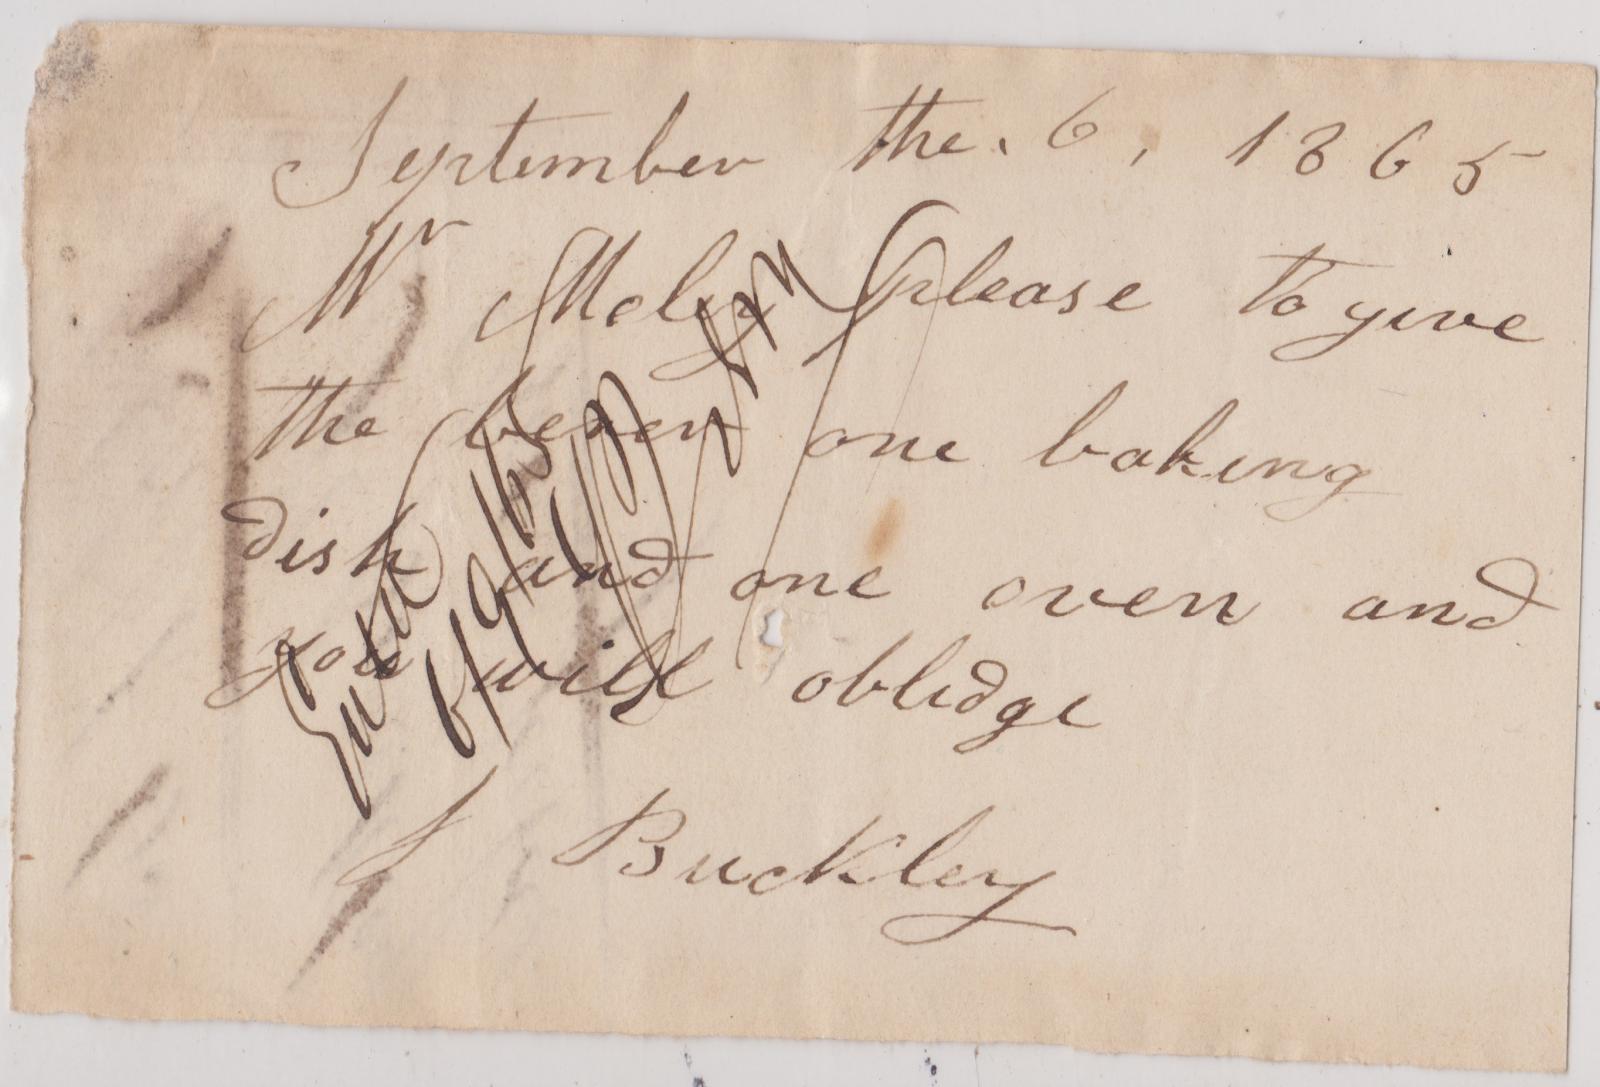 September the. 6, 1865
Mr Moly please to give
the berer one baking
dish and one oven and
you will oblidge
J Buckley
Entd
6/9/65